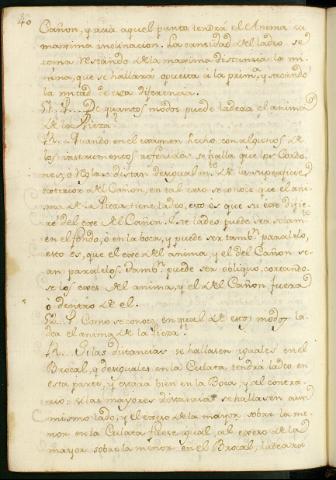 40
Cañon, y acia aquel punto tendrá el Anima su
maxima inclinacion. La cantidad del ladeo se
toma restando de la maxima distancia la mi-
nima, que se hallará opuesta a la prim.ª, y sacando
la mitad de esa diferencia.
P. De quantos modos puede ladearse el anima
de la Pieza?
R. Quando en el examen hecho con algunos de
los instrumentos referidos se halla que los
distan desigualm.te de la superficie
exterior del Cañon, en tal caso se conoce que el ani-
ma de la Pieza tiene ladeo, esto es que su exe difie-
re del exe del Cañon. Este ladeo puede ser solam.te
en el fondo, ó en la boca, y puede ser tamb.n paralelo,
esto es, que el exe del anima, y el del Cañon se-
an paralelos. Tamb.n puede ser obliquo, cortando-
se los exes del anima, y el del Cañon fuera
ó dentro de el.
P. Como se conoce en qual de estos modos la-
dea el anima de la Pieza?
R. Si las distancias se hallasen iguales en el
Brocal, y desiguales en la Culata, tendrá ladeo en
esta parte, y estará bien en la Boca, y al contra-
rio: si las mayores distancias se hallasen a un
mismo lado, y el exceso de la mayor sobre la me-
nor en la Culata fuese igual al exceso de la
mayor sobre la menor en el Brocal, ladeara